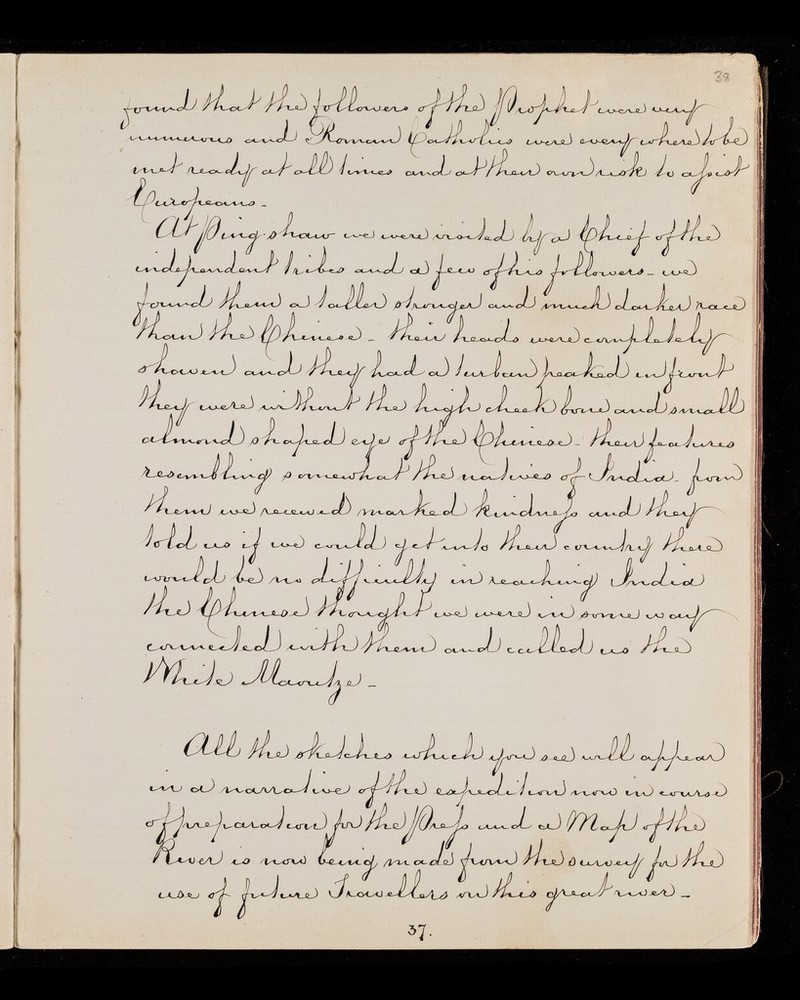 38
found that the followers of the Prophet were very
numerous and Roman Catholics were every where to be
met ready at all times and at their own risk to assist
Europeans -
At Ping-shaw we were visited by a Chief of the
independent tribes and a few of his followers - we
found them a taller stronger and much darker race
than the Chinese - their heads were completely
shaven and they had a turban peaked in front
they were without the high cheek bone and small
almond shaped eye of the Chinese - their features
resembling somewhat the natives of India - from
them we received marked kindness and they
told us if we could get into their country there
would be no difficulty in reaching India
the Chinese thought we were in some way
connected with them and called us the
White Maoutze -
All the sketches which you see will appear
in a narrative of the expedition now in course
of preparation for the Press and a Map of the
River is now being made from the survey for the
use of future Travellers on this great river -
37.